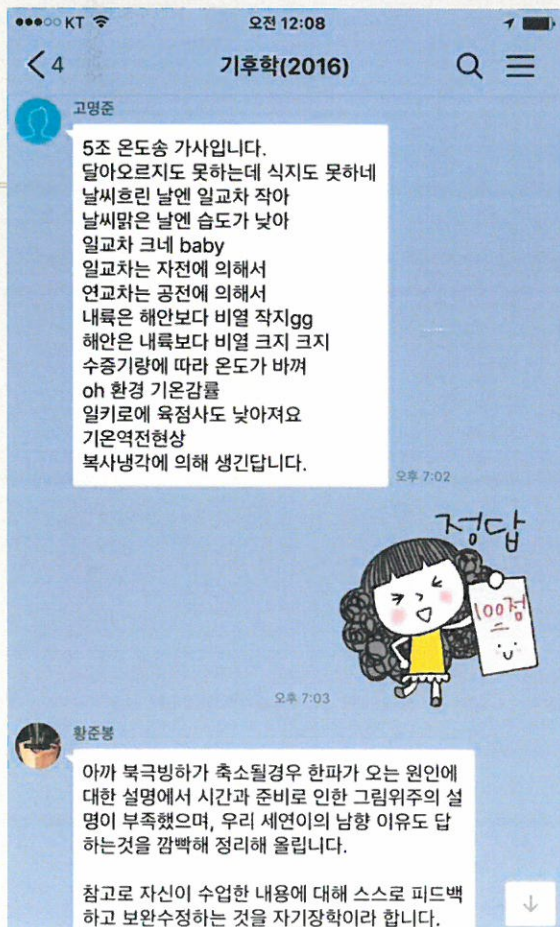 KT 오전 12:08
4 기후학(2016)
고명준
5조 온도송 가사입니다.
달아오르지도 못하는데 식지도 못하네
날씨흐린 날엔 일교차 작아
날씨맑은 날엔 습도가 낮아
일교차 크네 baby
일교차는 자전에 의해서
연교차는 공전에 의해서
내륙은 해안보다 비열 작지gg
해안은 내륙보다 비열 크지 크지
수증기량에 따라 온도가 바껴
oh 환경 기온감률
일키로에 육점사도 낮아져요
기온역전현상
복사냉각에 의해 생긴답니다.
오후 7:02
정답
100점
오후 7:03
황준봉
아까 북극빙하가 축소될경우 한파가 오는 원인에
대한 설명에서 시간과 준비로 인한 그림위주의 설
명이 부족했으며, 우리 세연이의 남향 이유도 답
하는것을 깜빡해 정리해 올립니다.
참고로 자신이 수업한 내용에 대해 스스로 피드백
하고 보완수정하는 것을 자기장학이라 합니다.